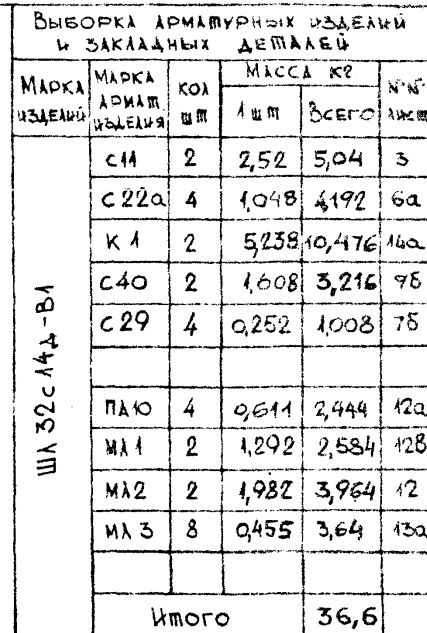 Выборка арматурных изделий
и закладных деталей
Марка изделий | Марка армат. изделия | Кол шт | Масса кг | №№ лист
1 шт | Всего
ШЛ 32с14д-В1
С11 | 2 | 2,52 | 5,04 | 3
С22а | 4 | 1,048 | 4,192 | 6а
К1 | 2 | 5,238 | 10,476 | 14а
С40 | 2 | 1,608 | 3,216 | 9б
С29 | 4 | 0,252 | 1,008 | 7б
ПА10 | 4 | 0,611 | 2,444 | 12а
МД1 | 2 | 1,292 | 2,584 | 12в
МД2 | 2 | 1,982 | 3,964 | 12
МД3 | 8 | 0,455 | 3,64 | 13а
Итого | 36,6